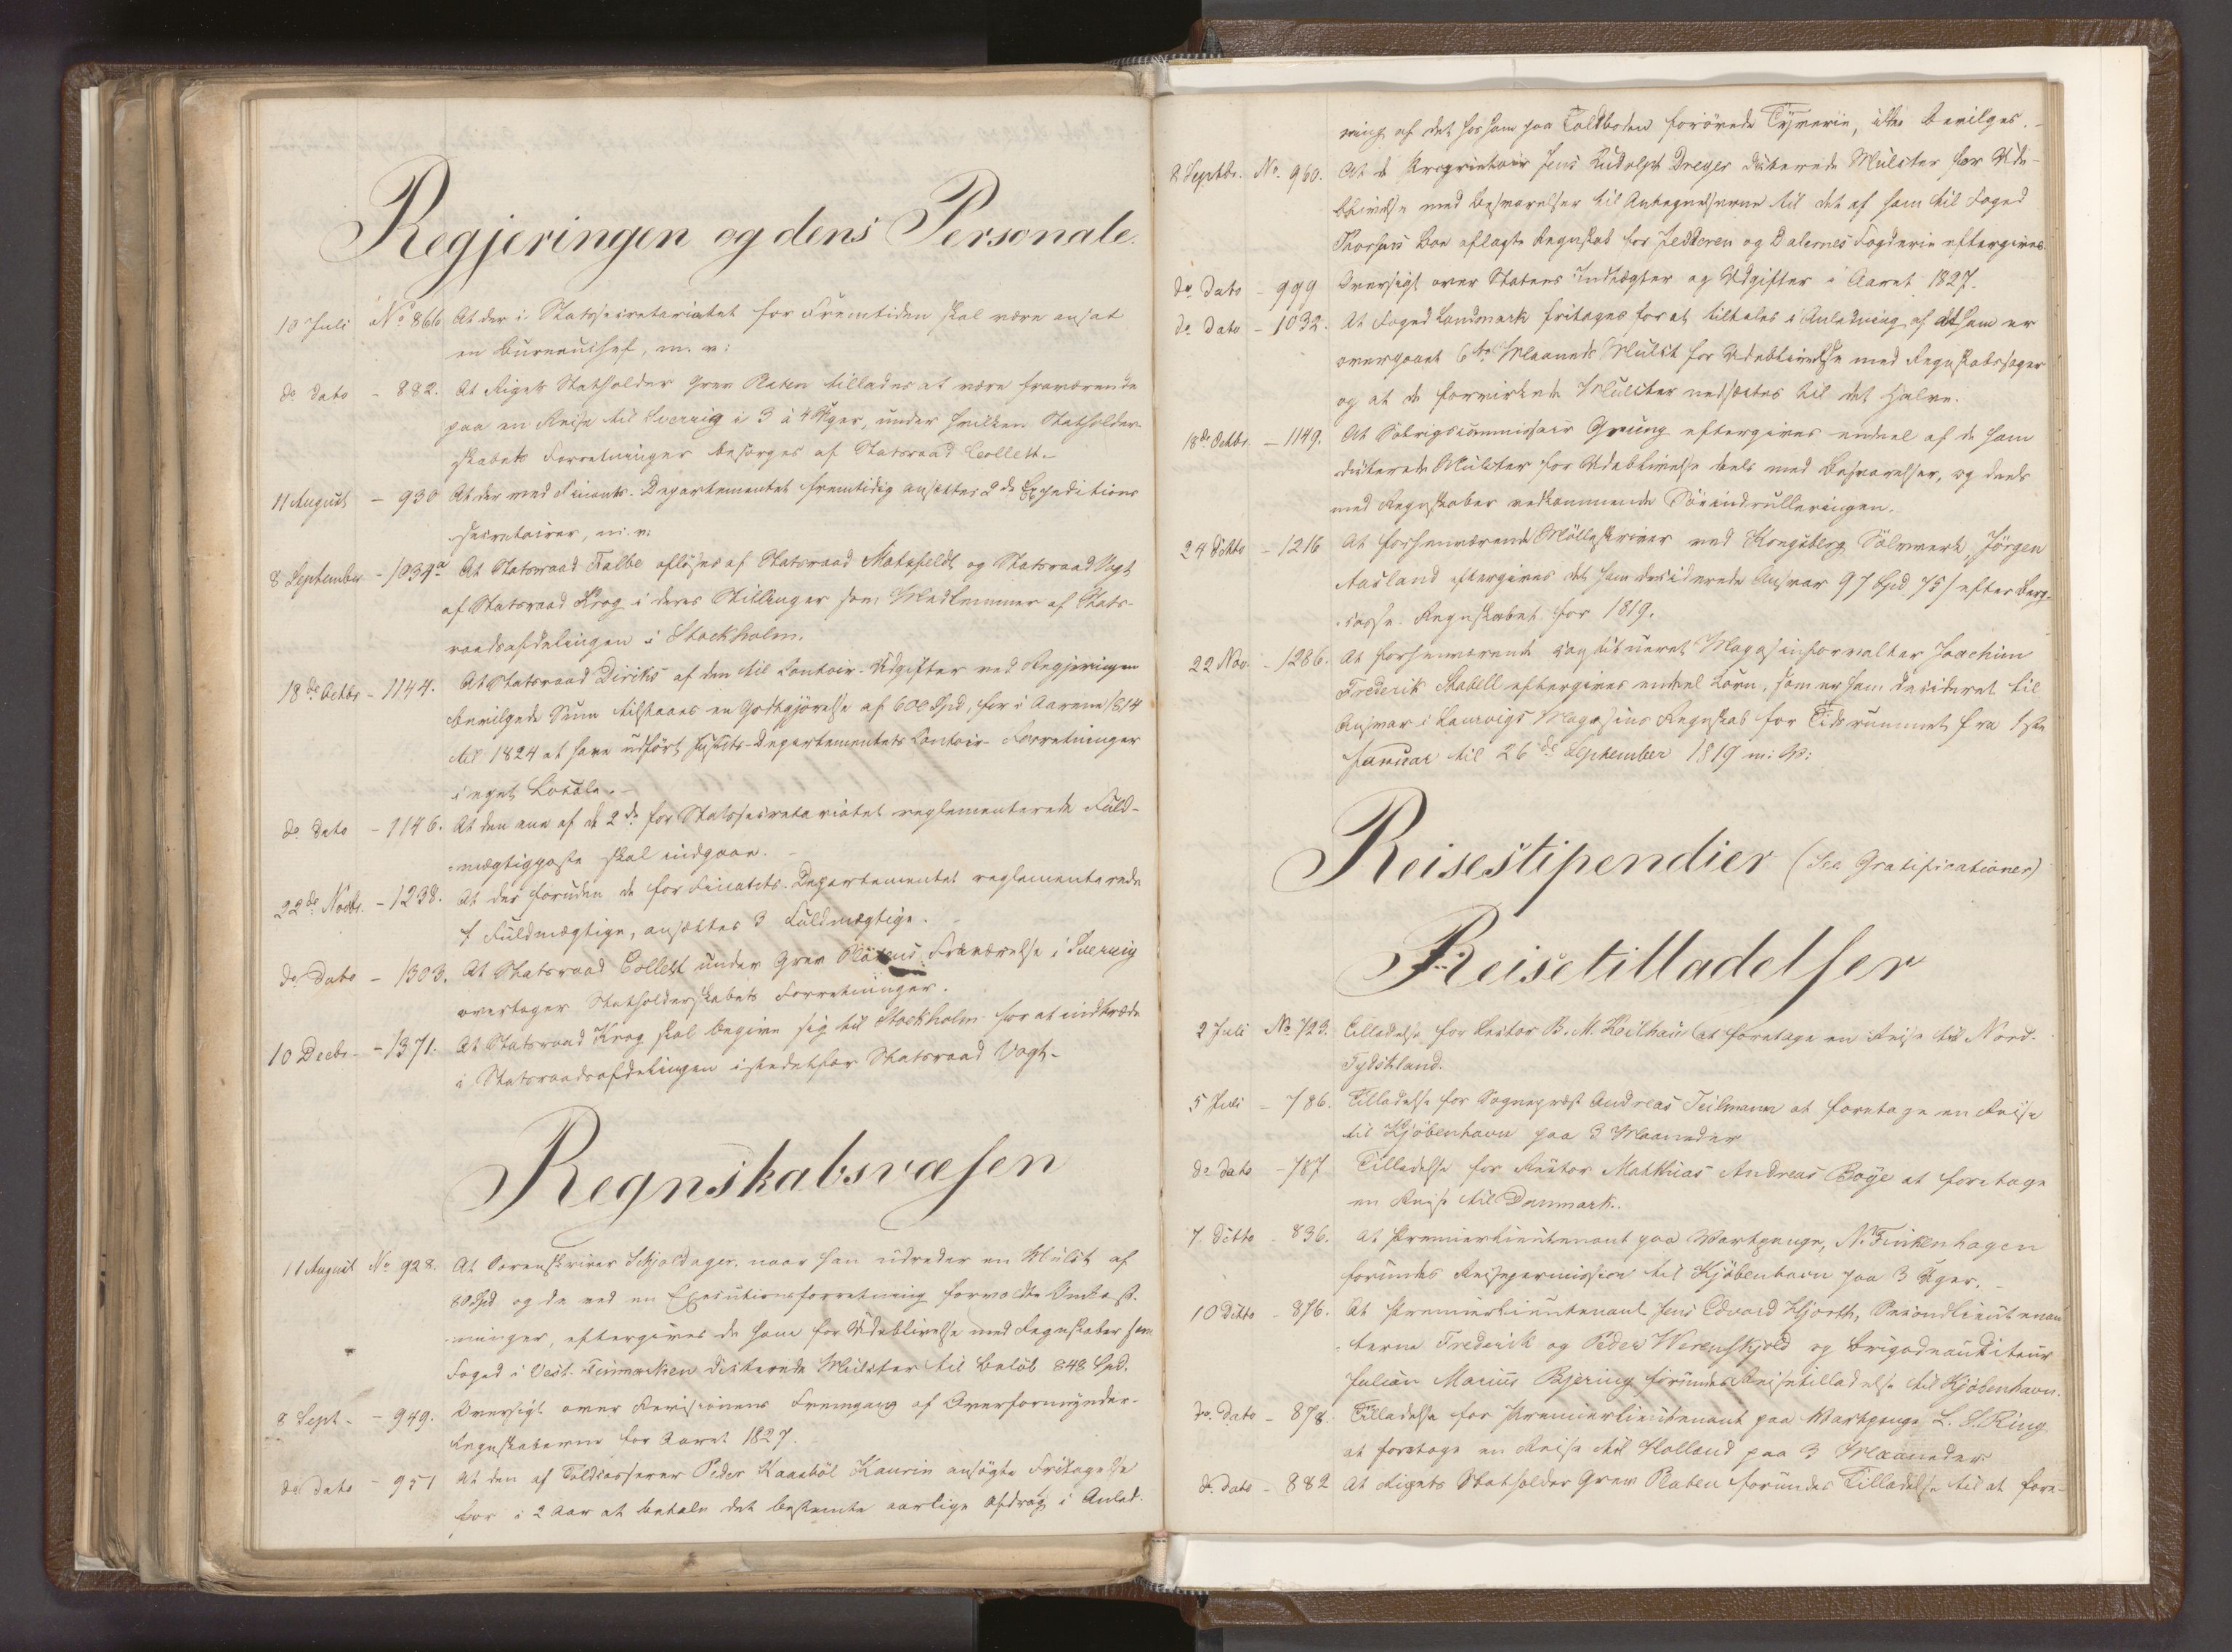 Regjeringen og dens Personale.
10 Juli No 866 At der i Statssecretariatet for Fremtiden skal være ansat
en Bureauchef, m. v:
do dato - 882. At Rigets Statholder Grev Platen tillades at være fraværende
paa en Reise til Sverrig i 3 à 4 Uger, under hvilken Statholder-
skabets Forretninger besørges af Statsraad Collett.-
11 August - 930 At der ved Finants-Departementet fremtidig ansættes 2de Expeditions
secretairer, m. v:
8 September - 1034a At Statsraad Falbe afløses af Statsraad Motzfeldt og Statsraad Vogt
af Statsraad Krog i deres Stillinger som Medlemmer af Stats-
raadsafdelingen i Stockholm.
18de Octbr - 1144. At Statsraad Diriks af den til Contoir-Udgifter ved Regjeringen
bevilgede Sum tilstaaes en Godtgjørelse af 600 Spd, for i Aarene 1814
til 1824 at have udført Justits-Departementets Contoir-Forretninger
i eget Locale.-
do dato - 1146. At den ene af de 2de for Statssecretariatet reglementerede Fuld-
mægtigposte skal indgaae.-
22de Novbr. - 1238. At der foruden de for Finants-Departementet reglementerede
7 Fuldmægtige, ansættes 3 Fuldmægtige.
do Dato - 1303. At Statsraad Collett under Grev Platens Fraværelse i Sverrig
overtager Statholderskabets Forretninger.
10 Decbr - 1371. At Statsraad Krog skal begive sig til Stockholm for at indtræde
i Statsraadsafdelingen istedetfor Statsraad Vogt-
Regnskabsvæsen
11 August No 928. At Sorenskriver Schjoldager, naar han udreder en Mulct af
80 Spd og de ved en Executionsforretning forvoldte Omkost-
ninger, eftergives de ham for Udeblivelse med Regnskaber som
Foged i Vest-Finmarken dicterede Mulcter til Beløb 848 Spd.
8 Sept - 949. Oversigt over Revisionens Fremgang af Overformynder-
Regnskaberne for Aaret 1827.
do dato - 951 At den af Toldcasserer Peder Kaasbøl Kaurin ansøgte Fritagelse
for i 2 Aar at betale det bestemte aarlige Afdrag i Anled-
ning af det hos ham paa Toldboden forøvede Tyverie, ikke bevilges.-
8 Septbr. No. 960. At de Proprietair Jens Rudolph Dreyer dicterede Mulcter for Ude-
blivelse med Besvarelser til Antegnelserne til det af ham til Foged
Thorsens Boe aflagte Regnskab for Jedderen og Dalernes Fogderie eftergives
do Dato - 999 Oversigt over Statens Indtægter og Udgifter i Aaret 1827.
do Dato - 1032. At Foged Landmark fritages for at tiltales i Anledning af at ham er
overgaaet 6te Maaneds Mulct for Udeblivelse med Regnskabssager
og at de forvirkede Mulcter nedsættes til det Halve.
18de Octbr - 1149. At Søkrigscommissair Grung eftergives endeel af de ham
dicterede Mulcter for Udeblivelse deels med Besvarelser, og deels
med Regnskaber vedkommende Søeindrulleringen.
24 Octbr - 1216 At forhenværende Mølleskriver ved Kongsberg Sølvverk, Jörgen
Aasland eftergives det ham decidererede Ansvar 97 Spd 75 / efter Berg-
casse-Regnskabet for 1819.
22 Nov. - 1286. At forhenværende constitueret Magasinforvalter Joachim
Frederik Stabell eftergives endeel Korn, som er ham decideret til
Ansvar i Laurvigs Magasins Regnskab for Tidsrummet fra 1ste
Januar til 26de September 1819 m: V:
Reisestipendier (See Gratificationer)
Reisetilladelser
2 Juli No 723. Tilladelse for Lector B. M. Keilhau at foretage en Reise til Nord-
Tydskland.
5 Juli - 786. Tilladelse for Sognepræst Andreas Teilmann at foretage en Reise
til Kjöbenhavn paa 3 Maaneder
do dato - 787 Tilladelse for Rector Matthias Andreas Boye at foretage
en Reise til Danmark.
7. ditto - 836. At Premierlieutenant paa Vartpenge, N. Finkenhagen
forundes Reisepermission til Kjöbenhavn paa 3 Uger.-
10 Ditto - 876. At Premierlieutenant Jens Edvard Hjorth, Secondlieutenan-
terne Frederik og Peder Werenskjold og Brigadeauditeur
Julian Marius Bjering forundes Reisetilladelse til Kjöbenhavn.
do. dato - 878. Tilladelse for Premierlieutenant paa Vartpenge L. S. Ring
at foretage en Reise til Holland paa 3 Maaneder
do. dato - 882 At Rigets Statholder Grev Platen forundes Tilladelse til at fore-